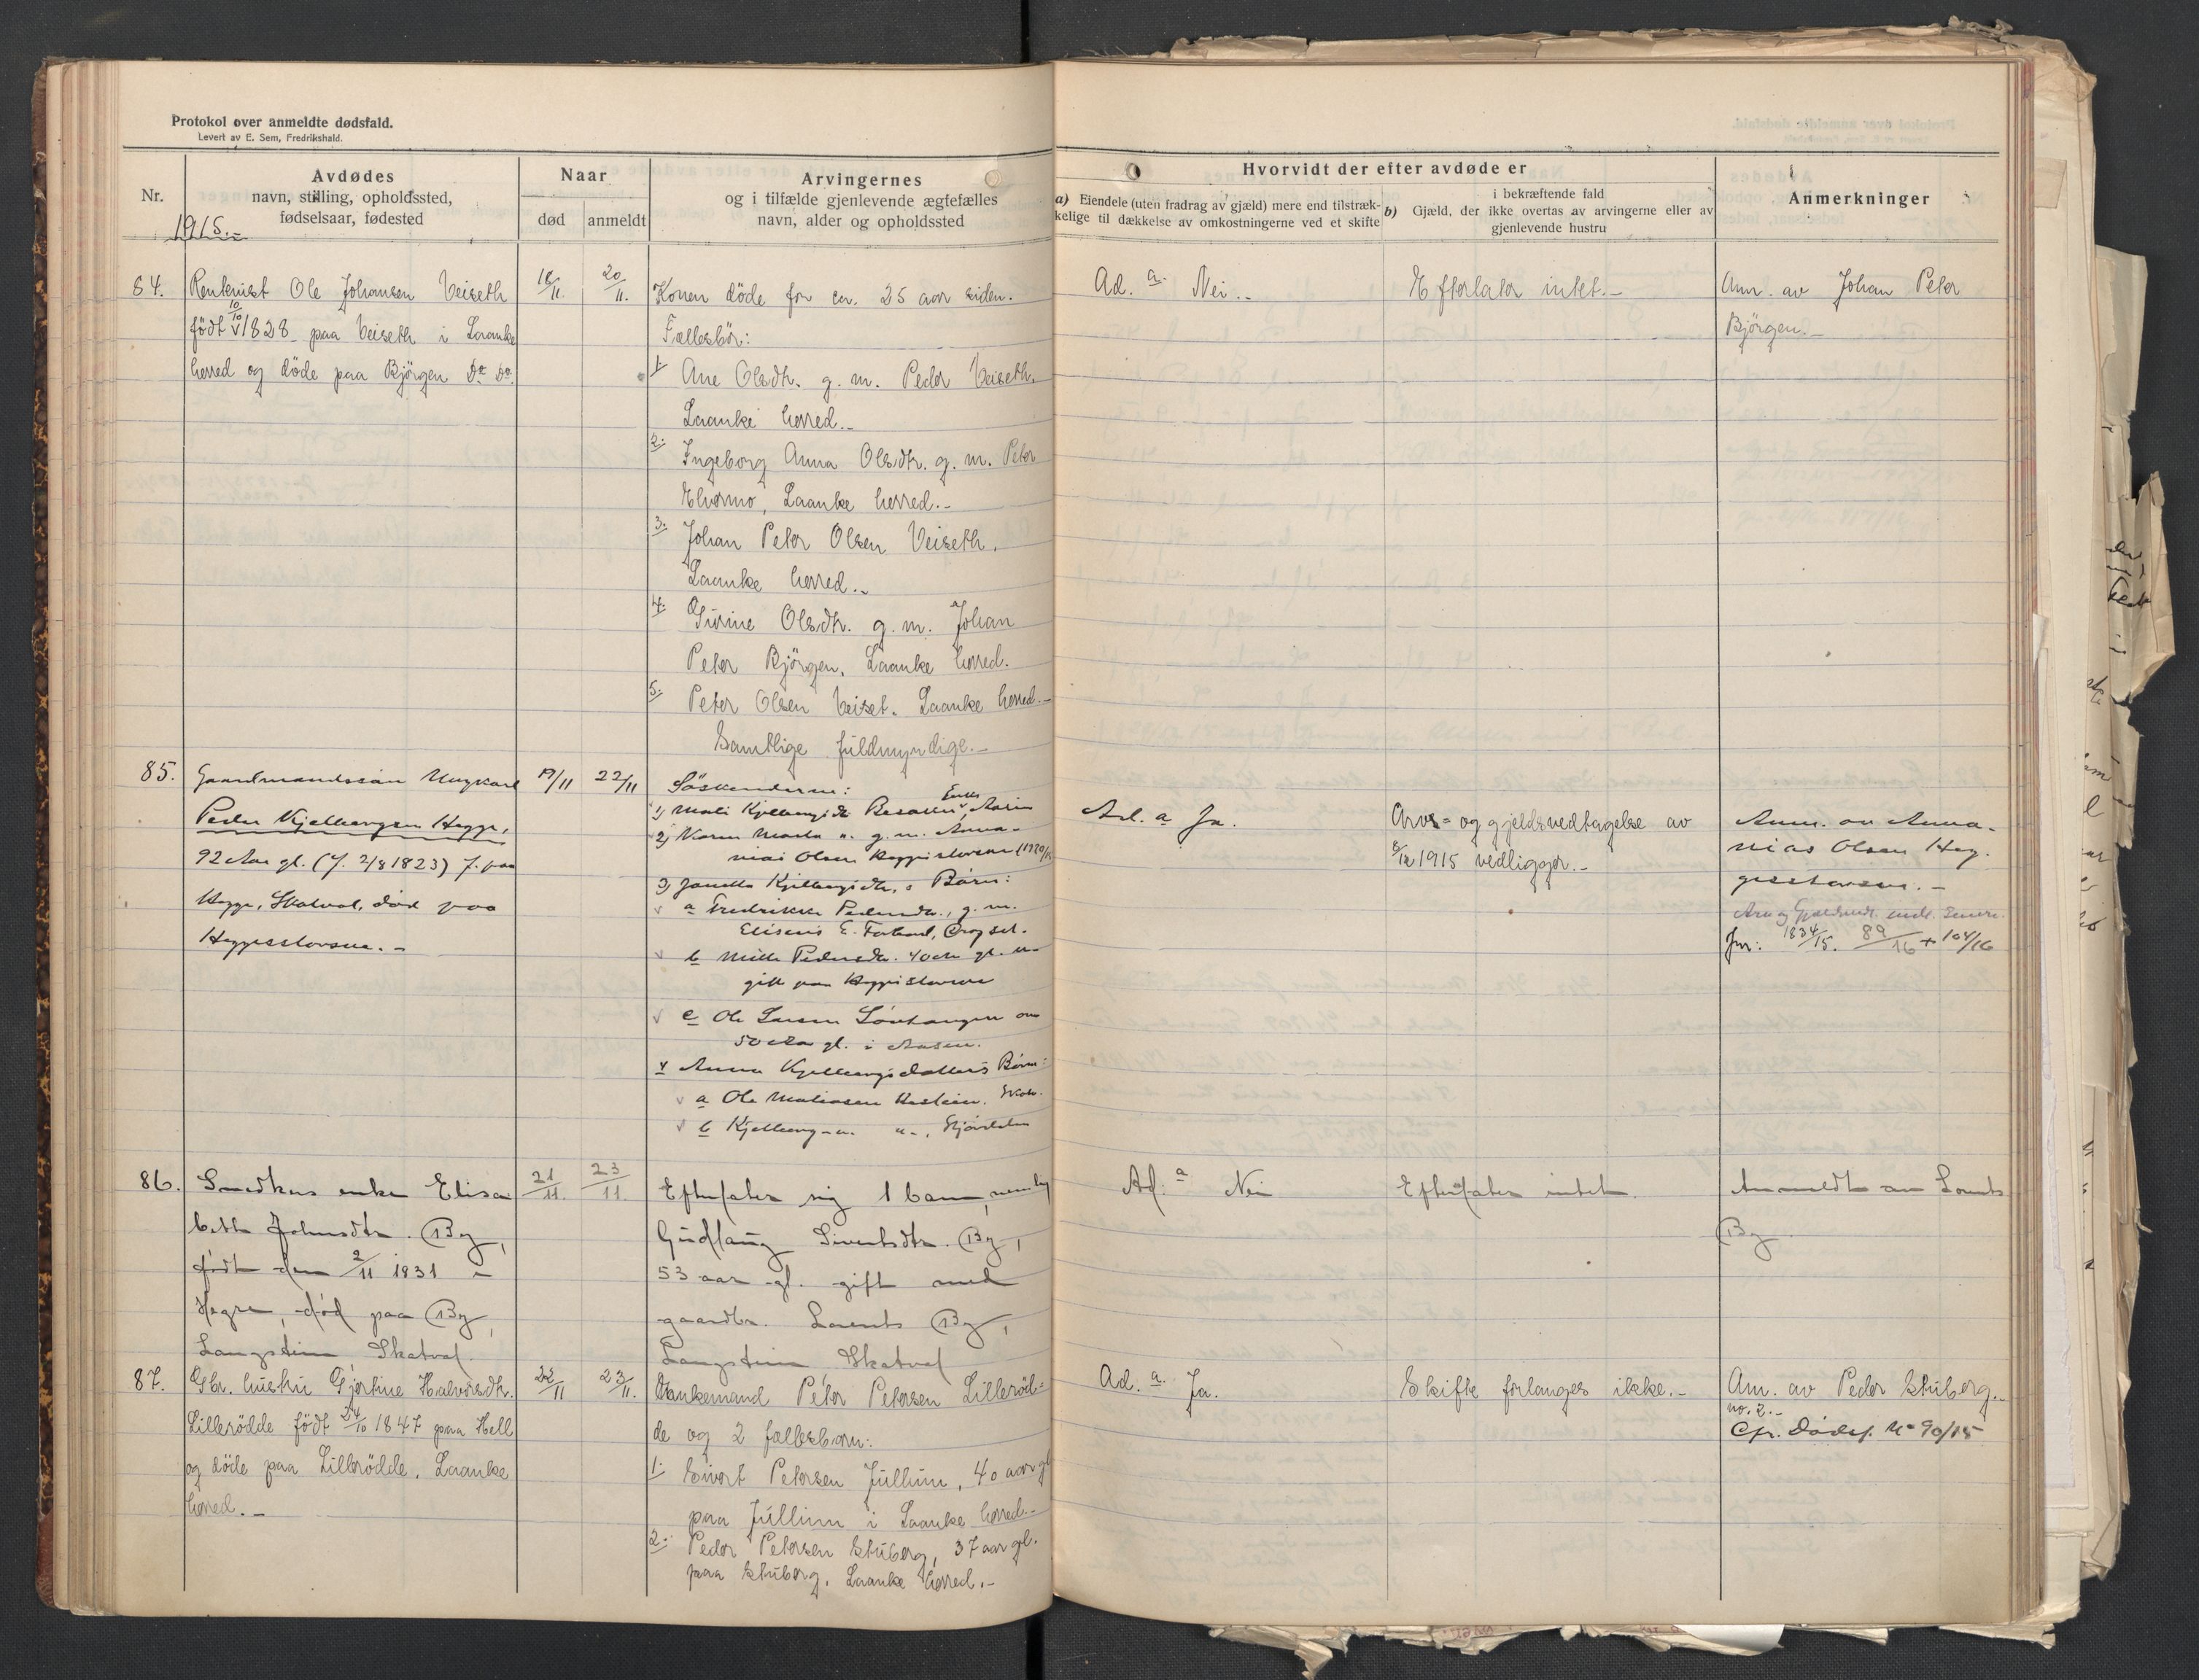 Protokol over anmeldte dødsfald.
Levert av E. Sem, Fredrikshald.
Nr.
Avdødes
navn, stilling, opholdssted,
fødselsaar, fødested
Naar
død
anmeldt
Arvingernes
og i tilfælde gjenlevende ægtefælles
navn, alder og opholdssted
1915.-
84.
Rentenist Ole Johansen Veiseth
født 10/10 1828 paa Veiseth i Laanke
herred og døde paa Bjørgen Do Do.
18/11.
20/11.
Konen døde for ca. 25 aar siden.
Fællesbør:
1. Ane Olsdtr. g. m. Peder Veiseth,
Laanke herred.-
2. Ingeborg Anna Olsdtr. g. m. Peter
Elvermo, Laanke herred.-
3. Johan Peter Olsen Veiseth,
Laanke herred.-
4. Gurine Olsdtr. g. m. Johan
Peter Bjørgen, Laanke herred.
5. Peter Olsen Veiset. Laanke herred.-
Samtlige fuldmyndige.-
85.
Gaardmandssøn Ungkarl
Peder Kjelbergsen Hegge,
92 Aar gl. (f. 2/8 1823) f. paa
Hegge, Skatval, død paa
Heggesstovsve.-
19/11
22/11
Søskenderne:
1) Mali Kjelbergsdtr Enke, Aasen
2) Karen Marta " g. m. Anna-
nias Olsen
3) Kjelbergsdtr, s Børn:
a Fredrikke Pedersdtr., g. m.
Eliseus E.
b Pedersdtr. 40 aar gl. u-
gift paa
c Ole Larsen om
50 aar gl. i Aasen.
4 Anna Kjelbergsdatters Børn:
a Ole Skatv.
b Kjelberg -"- "-, Stjørdalen
86.
Smedkus enke Elisa
beth Johnsdtr. By,
født den 2/11 1831 i
Hegra, død paa By,
Langstein Skatval
21/11.
23/11
Efterlater sig 1 barn, nemlig
Gudlaug Sivertsdtr. By,
53 aar gl. gift med
gaardbr. Lorents By,
Langstein Skatval
87.
Gbr. hustru Gjertine Halvorsdtr.
Lillerødde født 24/10 1847 paa Hell
og døde paa Lillerødde, Laanke
herred.-
22/11
23/11.
Enkemand Peter Petersen Lillerød=
de og 2 fællesbarn:
1. Sivert Petersen Jullum, 40 aar gl
paa Jullum i Laanke herred.-
2. Peder Petersen Stuberg, 37 aar gl.
paa Stuberg, Laanke herred.-
Hvorvidt der efter avdøde er
a) Eiendele (uten fradrag av gjæld) mere end tilstræk-
kelige til dækkelse av omkostningerne ved et skifte
b) Gjæld, der
i bekræftende fald
ikke overtas av arvingerne eller av
gjenlevende hustru
Anmerkninger
Ad. a. Nei.-
Efterlater intet.-
Anm. av Johan Peter
Bjørgen.-
Ad. a Ja.
Arve= og gjeldsvedtagelse av
8/12 1915 vedligger.-
Anm. av Anna-
nias Olsen Heg-
gesstovsve.-
Jnr: 1834/15. 89/16 + 104/16
Ad. a Nei
Efterlater intet.
Anmeldt av Lorents
By
Ad. a. Ja.
Skifte forlanges ikke.-
Am. av Peder Stuberg.-
no. 2.-
Cfr. Dødsf. No 90/15